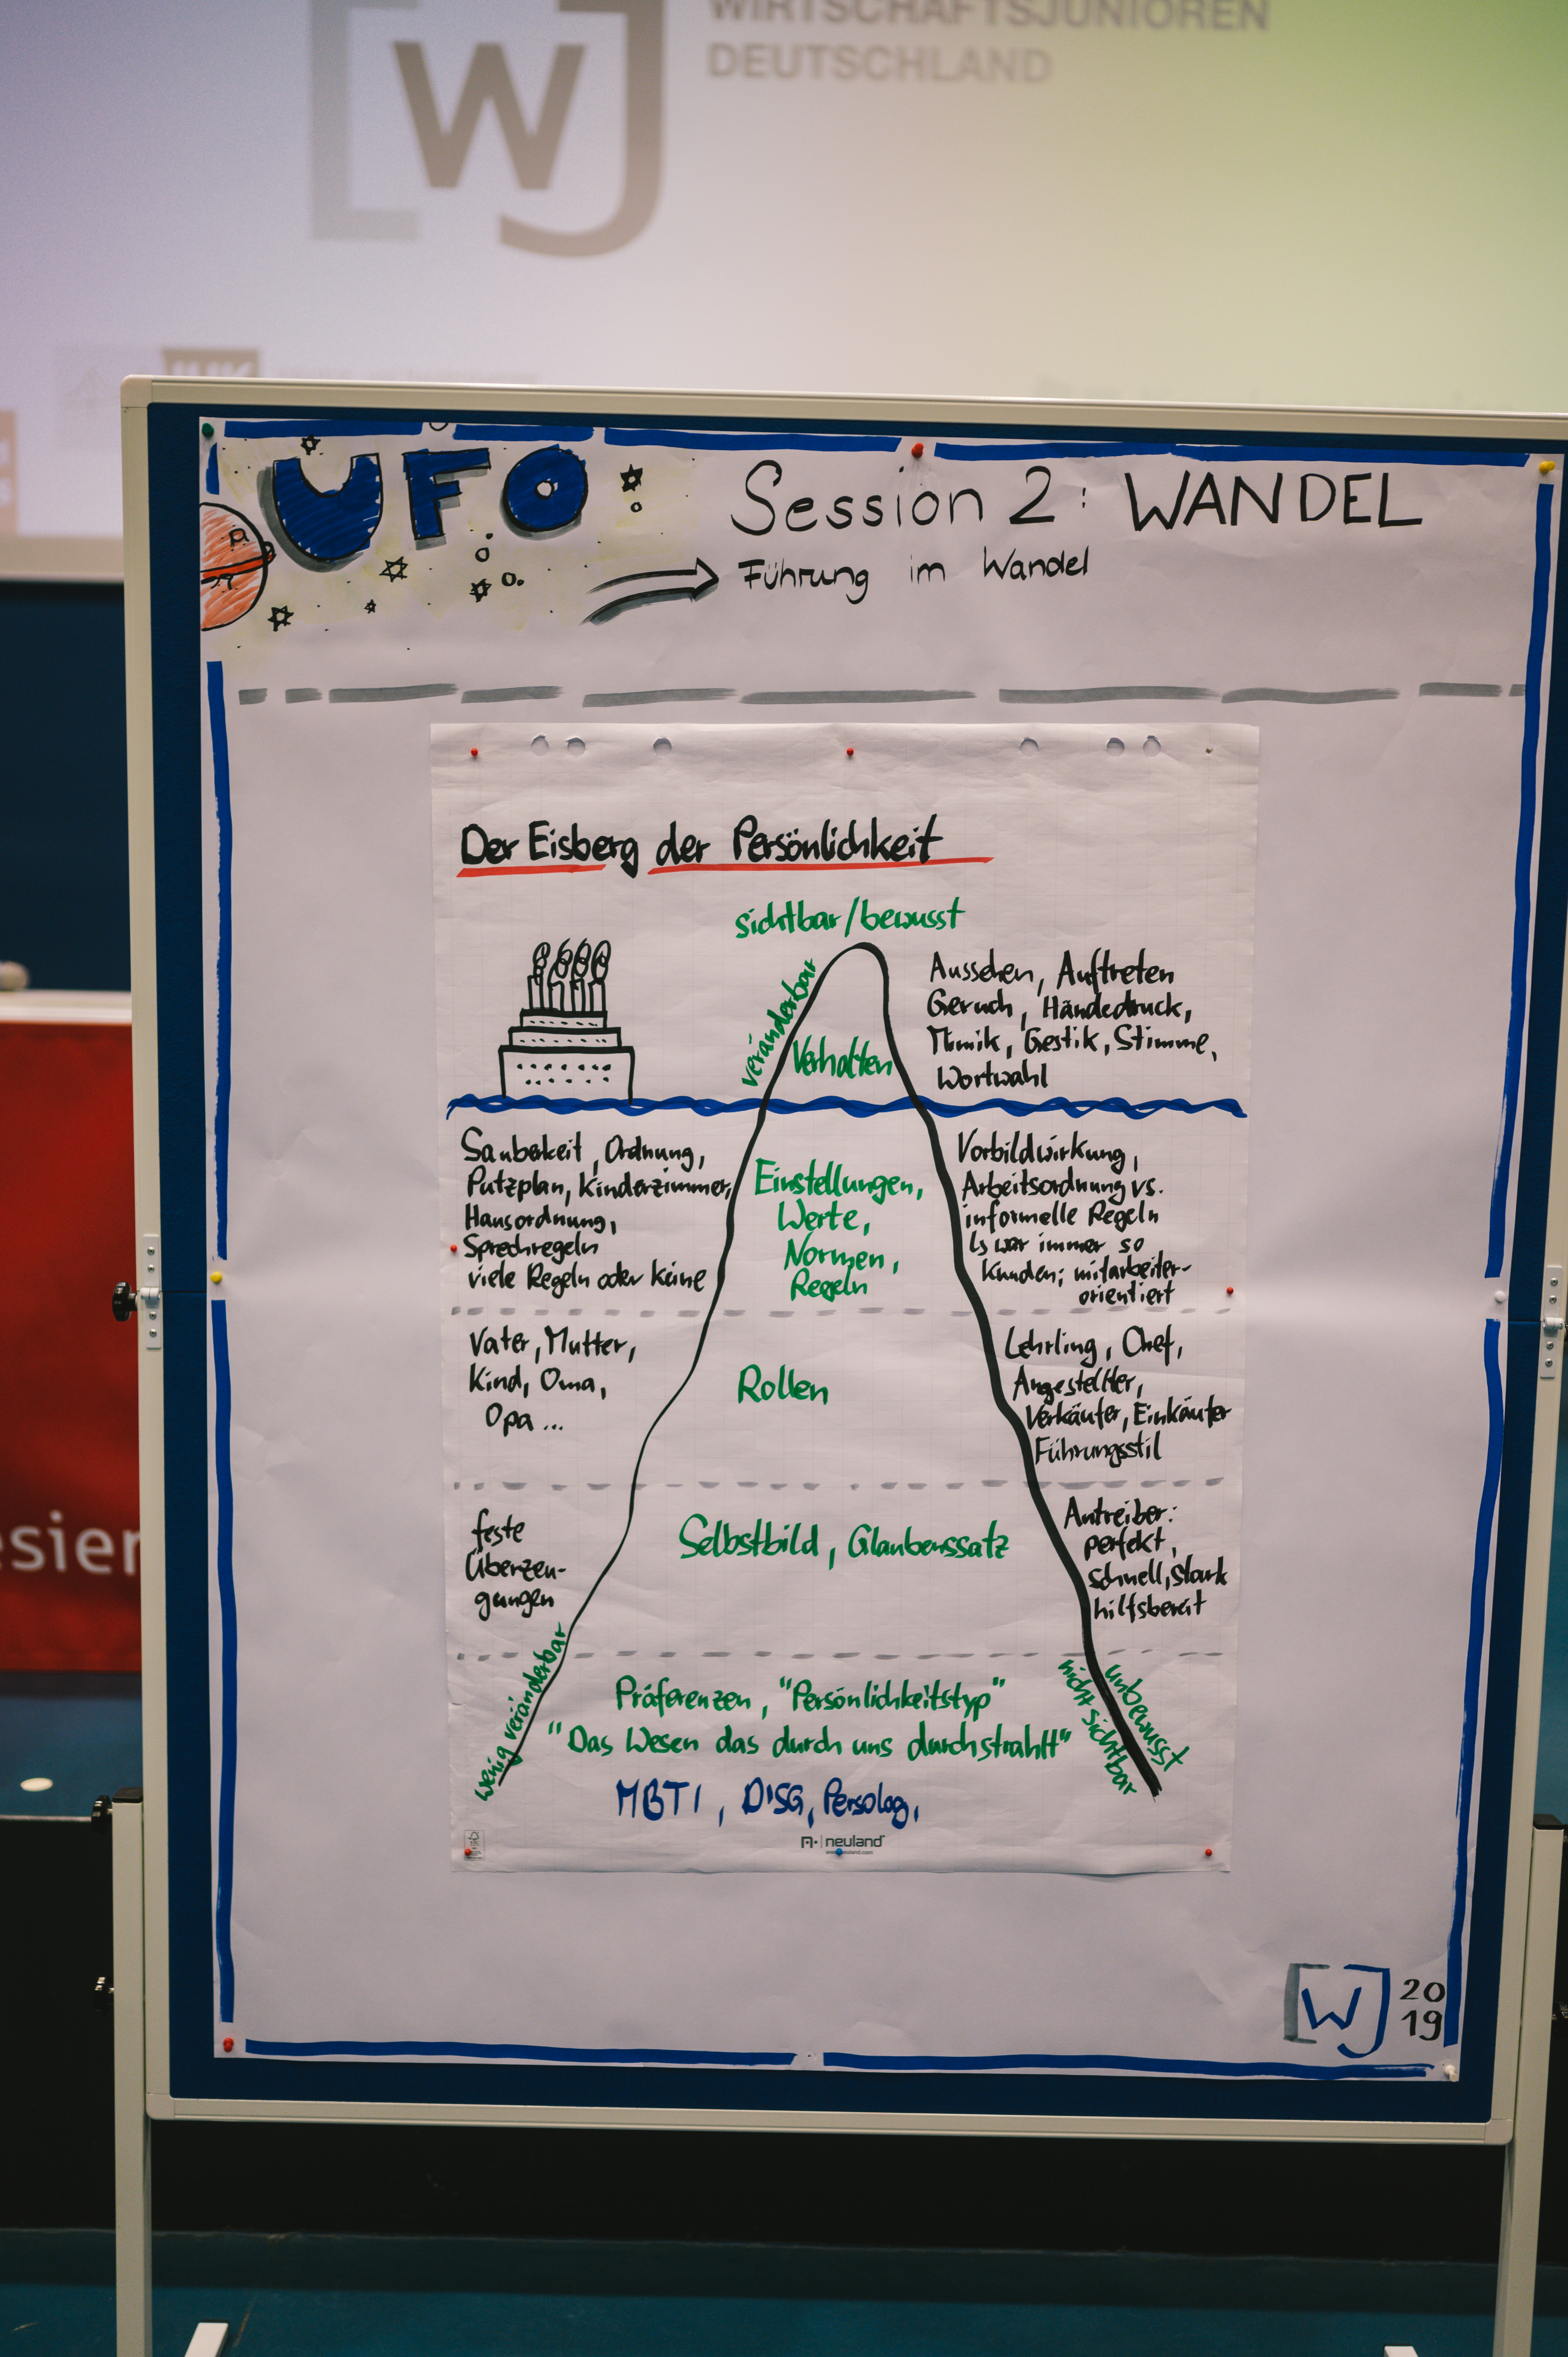 WIRTSCHAFTSJUNIOREN
DEUTSCHLAND
WJ
UFO
Session 2: WANDEL
Führung im Wandel
Der Eisberg der Persönlichkeit
sichtbar/bewusst
veränderbar
Verhalten
Aussehen, Auftreten
Geruch, Händedruck,
Mimik, Gestik, Stimme,
Wortwahl
Sauberkeit, Ordnung,
Putzplan, Kinderzimmer,
Hausordnung,
Sprechregeln
viele Regeln oder keine
Einstellungen,
Werte,
Normen,
Regeln
Vorbildwirkung,
Arbeitsordnung vs.
informelle Regeln
Es war immer so
Kunden; mitarbeiter-
orientiert
Vater, Mutter,
Kind, Oma,
Opa ...
Rollen
Lehrling, Chef,
Angestellter,
Verkäufer, Einkäufer
Führungsstil
feste
Überzeu-
gungen
Selbstbild, Glaubenssatz
Antreiber:
perfekt,
schnell, stark
hilfsbereit
wenig veränderbar
Präferenzen, "Persönlichkeitstyp"
"Das Wesen das durch uns durchstrahlt"
unbewusst
nicht sichtbar
MBTI, DISG, Persolog,
neuland
WJ
20
19
esier